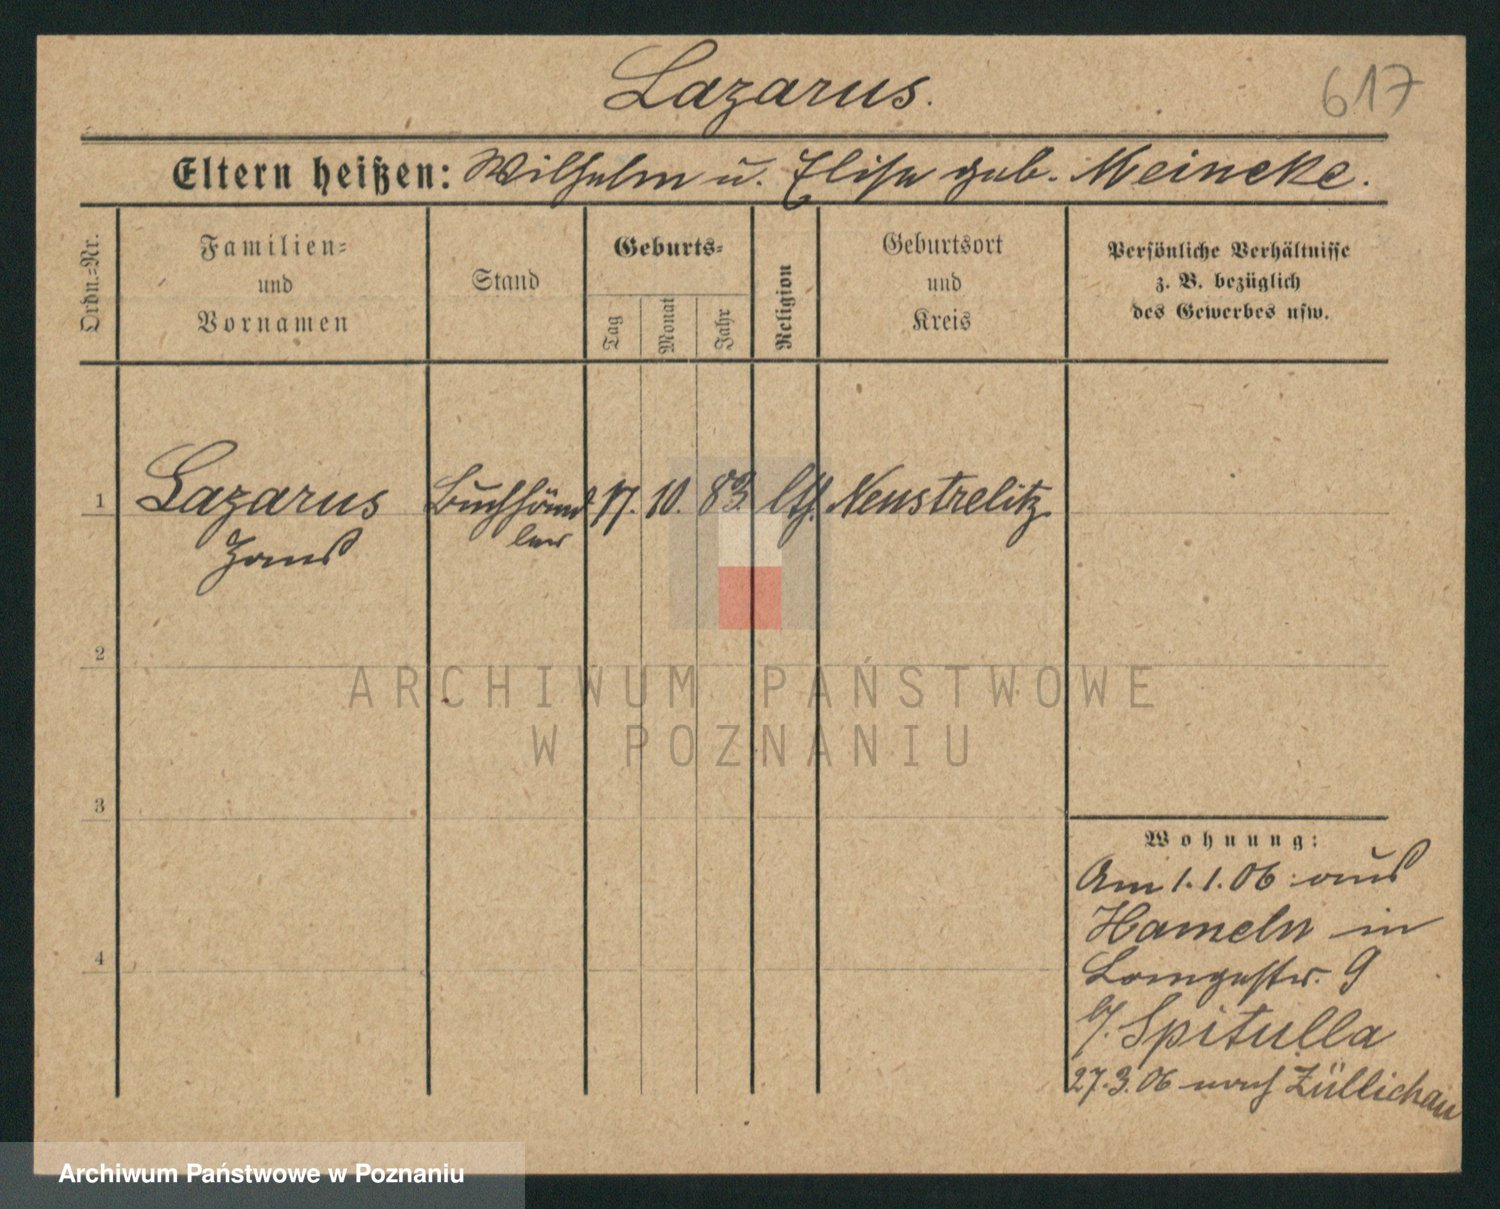 Lazarus.
617
Eltern heißen: Wilhelm u. Elise geb. Meincke.
Ordn.-Nr.
Familien-
und
Vornamen
Stand
Geburts-
Tag
Monat
Jahr
Religion
Geburtsort
und
Kreis
Persönliche Verhältnisse
z. B. bezüglich
des Gewerbes usw.
1 Lazarus Buchhänd 17. 10. 83. Neustrelitz.
Hans ler
2
3
4
Wohnung:
Am 1.1.06 aus
Hameln in
9
b/. Spitulla
27.3.06 nach Züllichau
ARCHIWUM PAŃSTWOWE
W POZNANIU
Archiwum Państwowe w Poznaniu